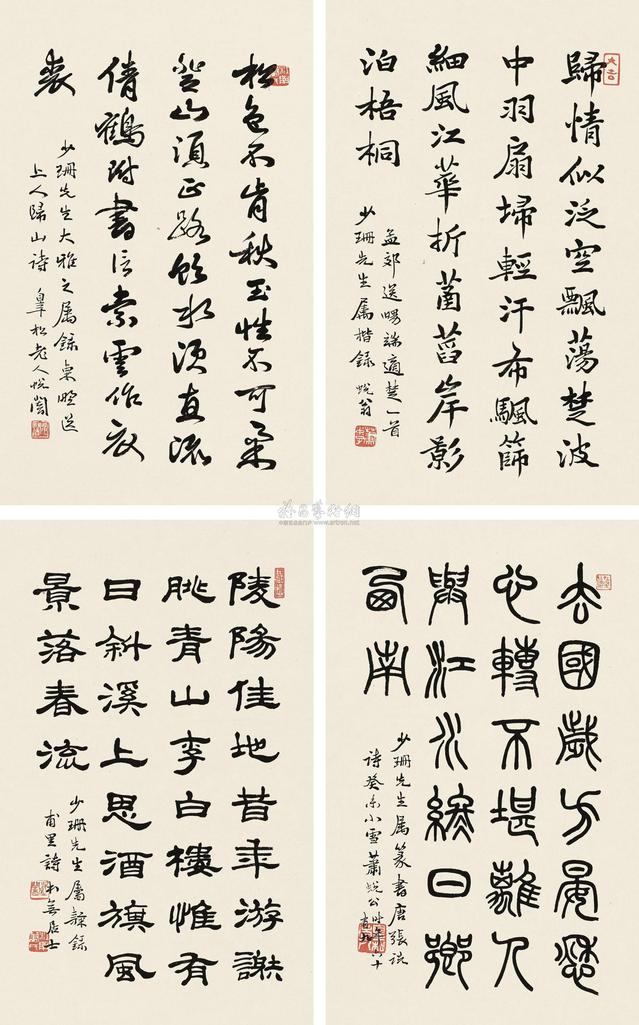 歸情似泛空飄蕩楚波
中羽扇掃輕汗布颿篩
細風江華折菡萏岸影
泊梧桐
孟郊送適楚一首
少珊先生属楷錄 蛻翁
松色不肯秋玉性不可柔
登山須正路飲水須直流
倩鶴附書信索雲作衣
裘
少珊先生大雅之属錄東野送
上人歸山诗 皋松老人蛻闇
去國歲方晏愁
心轉不堪離人
與江水終日嚮
西南
少珊先生属篆書唐張説
诗癸未小雪蕭蛻公時年六十
陵陽佳地昔年游謝
朓青山李白樓惟有
日斜溪上思酒旗風
景落春流
少珊先生屬隸錄
甫里詩 本無居士
www.artron.net